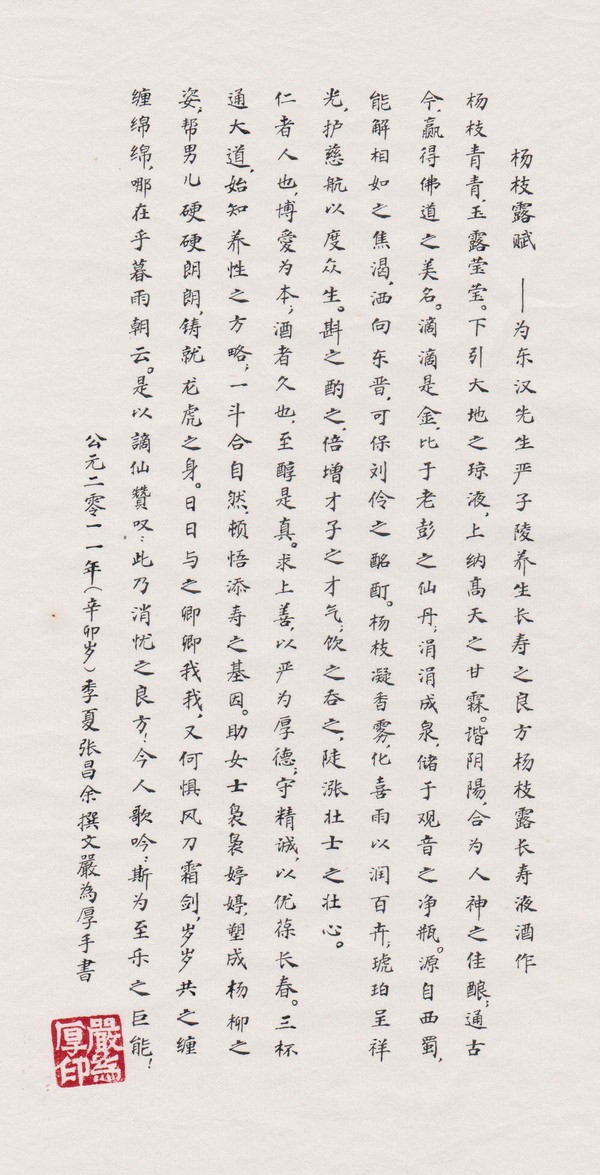 杨枝露赋 ——为东汉先生严子陵养生长寿之良方杨枝露长寿液酒作
杨枝青青,玉露莹莹。下引大地之琼液,上纳高天之甘霖。谐阴陽,合为人神之佳酿;通古
今,赢得佛道之美名。滴滴是金,比于老彭之仙丹;涓涓成泉,储于观音之净瓶。源自西蜀,
能解相如之焦渴,洒向东晋,可保刘伶之酩酊。杨枝凝香雾,化喜雨以润百卉;琥珀呈祥
光,护慈航以度众生。斟之酌之,倍增才子之才气;饮之吞之,陡涨壮士之壮心。
仁者人也,博愛为本;酒者久也,至醇是真。求上善,以严为厚德;守精诚,以优葆长春。三杯
通大道,始知养性之方略;一斗合自然,顿悟添寿之基因。助女士袅袅婷婷,塑成杨柳之
姿,帮男儿硬硬朗朗,铸就龙虎之身。日日与之卿卿我我,又何惧风刀霜剑,岁岁共之缠
缠绵绵,哪在乎暮雨朝云。是以谪仙赞叹:此乃消忧之良方!今人歌吟:斯为至乐之巨能!
公元二零一一年(辛卯岁)季夏张昌余撰文嚴為厚手書
嚴為
厚印